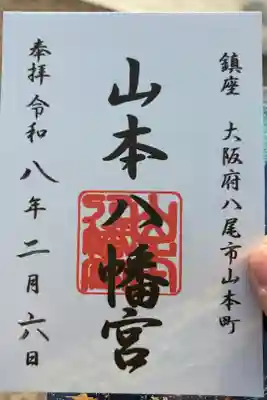 鎮座 大阪府八尾市山本町
山本八幡宮
奉拝 令和八年二月六日